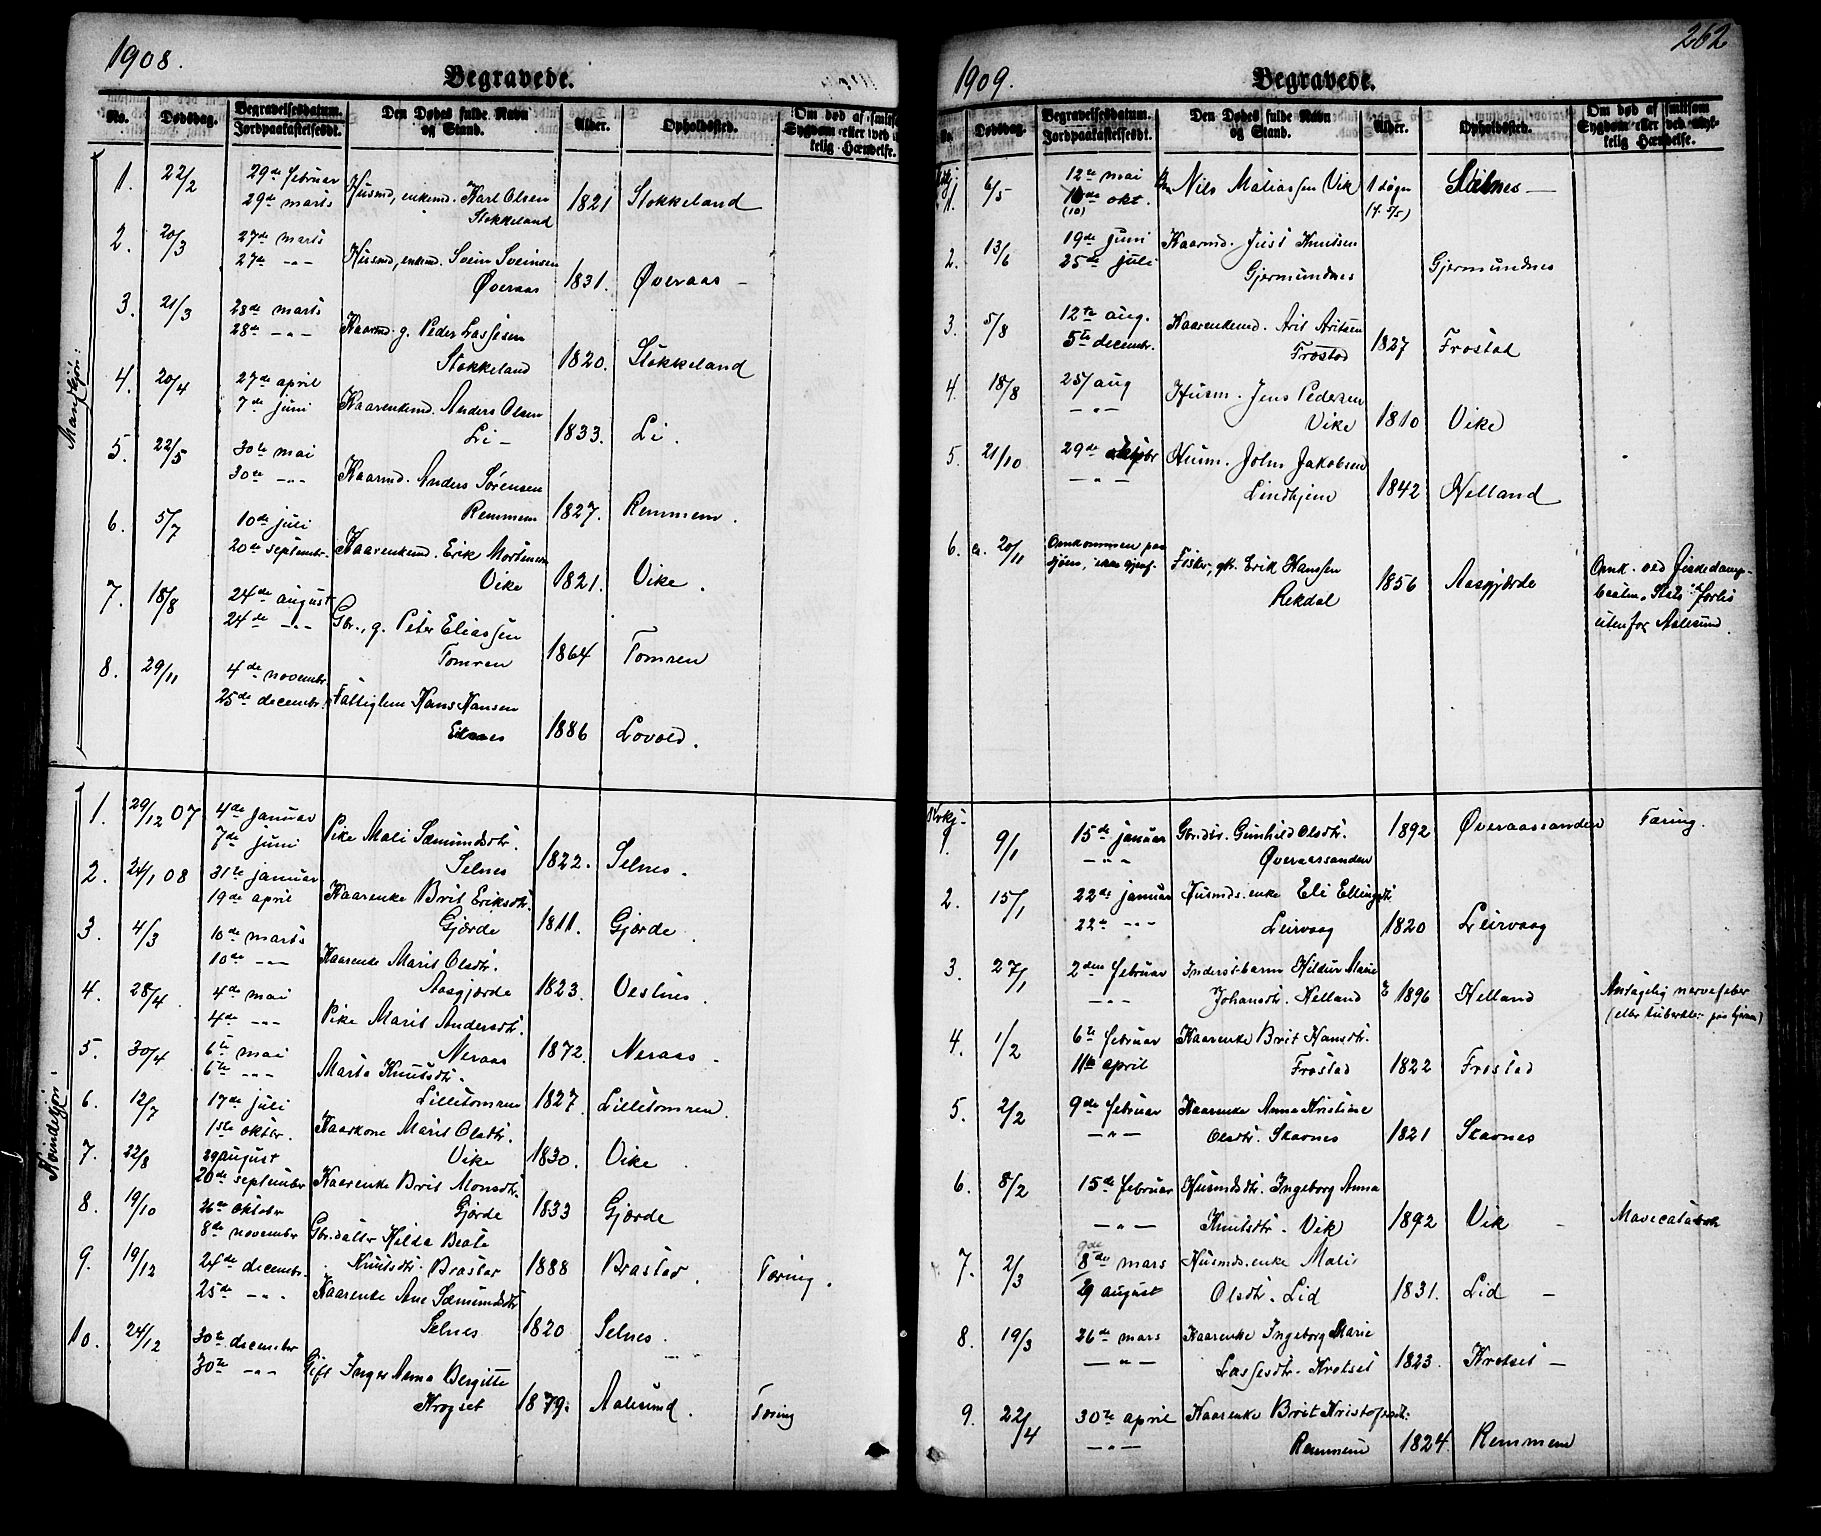 1908.
Begravede.
No. Dødsdag. Begravelsesdatum. Jordpaakastelsesdt. Den Dødes fulde Navn og Stand. Alder. Opholdssted. Om død af smitsom Sygdom eller ved ulykkelig Hændelse.
Mandkjøn:
1. 22/2 29de februar Husmd, enkemd. Karl Olsen
29de marts Stokkeland 1821 Stokkeland
2. 20/3 27de marts Husmd, enkemd. Svein Sveinsen
27de -"- Øveraas 1831. Øveraas -
3. 21/3 28de marts Kaarmd. g. Peder Lassesen
28de -"- Stokkeland 1820. Stokkeland
4. 20/4 27de april Kaarenkemd. Anders Olsen
7de juni Li - 1833. Li.
5. 22/5 30te mai Kaarmd. Anders Sørensen
30te -"- Remmem 1827. Remmem.
6. 5/7 10de juli Kaarenkemd. Erik Mortensen
20de septembr. Vike 1821. Vike.
7. 18/8 24de august Gbr., g. Peter Eliassen
24de -"- Tomren 1864 Tomren
8. 29/11 4de novembr. Fattiglem Hans Hansen
25de decembr. Eidsnes 1886 Lovold.
Kvindekjøn:
1. 29/12 07 4de januar Pike Mali Sæmundsdtr.
7de juni Selnes 1822. Selnes.
2. 24/1 08 31te januar Kaarenke Brit Eriksdtr.
19de april Gjærde 1811. Gjærde.
3. 4/3 10de marts Kaarenke Marit Olsdtr.
10de -"- Aasgjærde 1823. Vestnes.
4. 28/4 4de mai Pike Marit Andersdtr.
4de -"- Neraas 1872. Neraas -
5. 30/4 6te mai Marta Knutsdtr.
6te -"- Lilletomren 1827. Lilletomren.
6. 12/7 17de juli Kaarkone Marit Olsdtr.
1ste oktbr. Vike 1830. Vike.
7. 22/8 29 august Kaarenke Brit Monsdtr.
20de september Gjærde 1833 Gjærde
8. 19/10 26de oktober Gbr.datter Hilda Beate
8de november Knutsdtr. Brastad 1888 Brastad. Tæring.
9. 19/12 24de decembr. Kaarenke Ane Sæmundsdtr
25de -"- Selnes 1820 Selnes.
10. 24/12 30te december Gift Inger Anna Bergitte
30te -"- Krogset 1879. Aalesund. Tæring
262
1909.
Begravede.
No. Dødsdag. Begravelsesdatum. Jordpaakastelsesdt. Den Dødes fulde Navn og Stand. Alder. Opholdssted. Om død af smitsom Sygdom eller ved ulykkelig Hændelse.
1. 6/5 12te mai Nils Matiassen Vik 1 døgn Salnes -
10de okt. (f. 5/5)
(10)
2. 13/6 19de juni Kaarmd. Just Knutsen
25de juli Gjermundnes Gjermundnes
3. 5/8 12te aug. Kaarenkemd. Arit Aritsen
5te decembr. Frostad 1827 Frostad
4. 18/8 25/ aug Husm. Jens Pedersen
-"- Vike 1810 Vike
5. 21/10 29de oktobr Husm. John Jakobsen
-"- Lindhjem 1842 Helland
6. ca. 20/11 Omkommen paa Fisker, gt. Erik Hansen Omk. ved fiskedamp-
sjøen, Rekdal 1856 Aasgjærde
utenfor Aalesund.
Kvkj.
1. 9/1 15de januar Gbr.dtr. Gunhild Olsdtr. 1892 Øveraassanden Tæring.
-"- Øveraassanden
2. 15/1 22de januar Husmds.enke Eli Ellingsdtr
22de -"- Leirvaag 1820 Leirvaag
3. 27/1 2den februar Inderstbarn Hildur Marie Antagelig nervefeber
-"- Johansdtr. Helland 1896 Helland (eller tuberkler paa hjernen)
4. 1/2 6te februar Kaarenke Brit Hansdtr.
11te april Frostad 1822 Frostad
5. 2/2 9de februar Kaarenke Anna Kristine
-"- Olsdtr. Skavnes 1821 Skavnes
6. 8/2 15de februar Husmdsdtr. Ingeborg Anna
-"- Knutsdtr. Vik 1892 Vik - Mavecatarrh
9de
7. 2/3 8de mars Husmds.enke Mali
29 august Olsdtr. Lid 1831. Lid -
8. 19/3 26de mars Kaarenke Ingeborg Marie
-"- Lassesdtr. Krokset 1823. Krokset -
9. 22/4 30te april Kaarenke Brit Kristofersdtr.
-"- Remmem 1824. Remmem